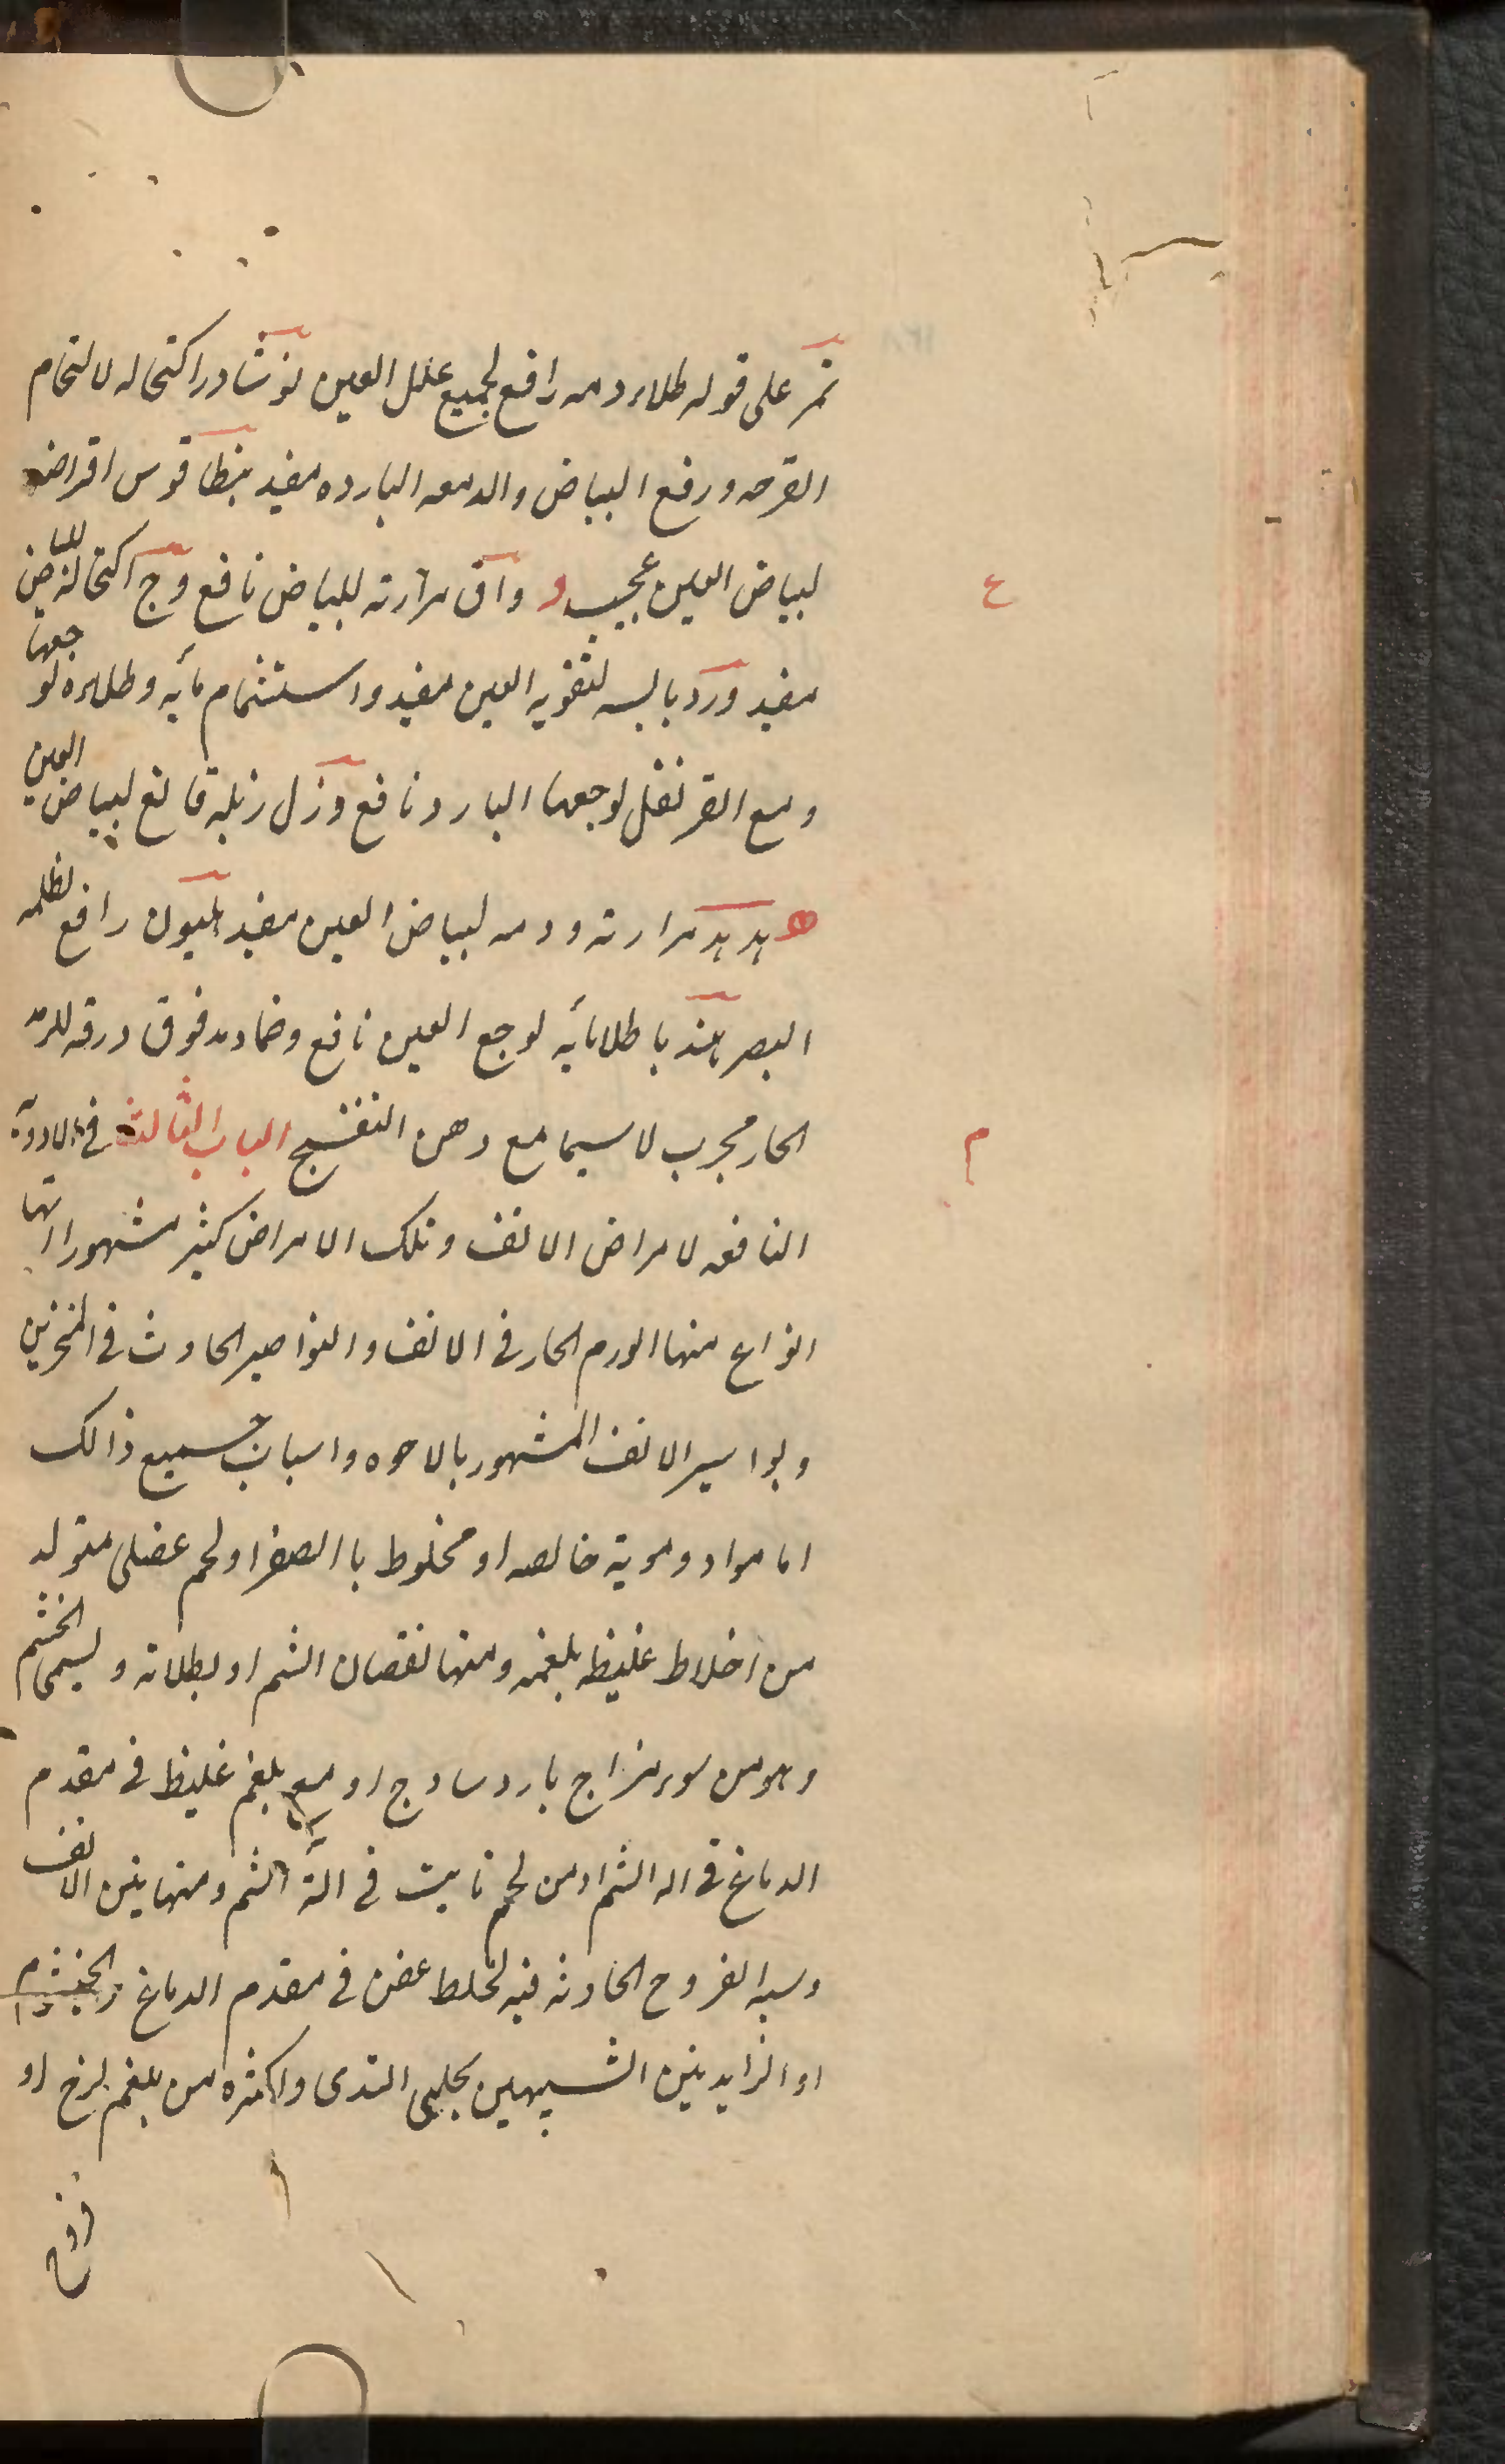 نمر على قوله طلاء دمه رافع لجميع علل العين نوشادر اكتحاله لالتحام
القرحه ورفع البياض والدمعه البارده مفيد بنطاقوس اقراضه
لبياض العين عجيب و واق مرارته للبياض نافع وج اكتحاله للبياض
ع
مفيد ورد يابسه لتقويه العين مفيد واستشمام مائه وطلاءه لوجعها
ومع القرنفل لوجعها البارد نافع ورل زبله قالع لبياض العين
ه هدهد مرارته ودمه لبياض العين مفيد هليون رافع لظلمه
البصر هندبا طلا مائه لوجع العين نافع وضماد مدقوق ورقه للرمد
الحار مجرب لاسيما مع دهن البنفسج الباب الثالث في الادوية
م
النافعه لامراض الانف وتلك الامراض كثير مشهوراتها
انواع منها الورم الحار في الانف والنواصير الحادث في المنخرين
وبواسير الانف المشهور بالاحوه واسباب جميع ذالك
اما مواد دموية خالصه او مخلوط باالصفرا ولحم عضلى متولد
من اخلاط غليظه بلغمه ومنها نقصان الشم او بطلانه ويسمى الخشم
وهو من سوء مزاج بارد ساذج او مع بلغم غليظ في مقدم
الدماغ في اله الشم او من لحم نابت في آلة الشم ومنها نتن الانف
وسببه القروح الحادثه فيه لخلط عفن في مقدم الدماغ والخيشوم
او الزايدتين الشبيهين بحلمى الثدى واكثره من بلغم لزج او
قروح